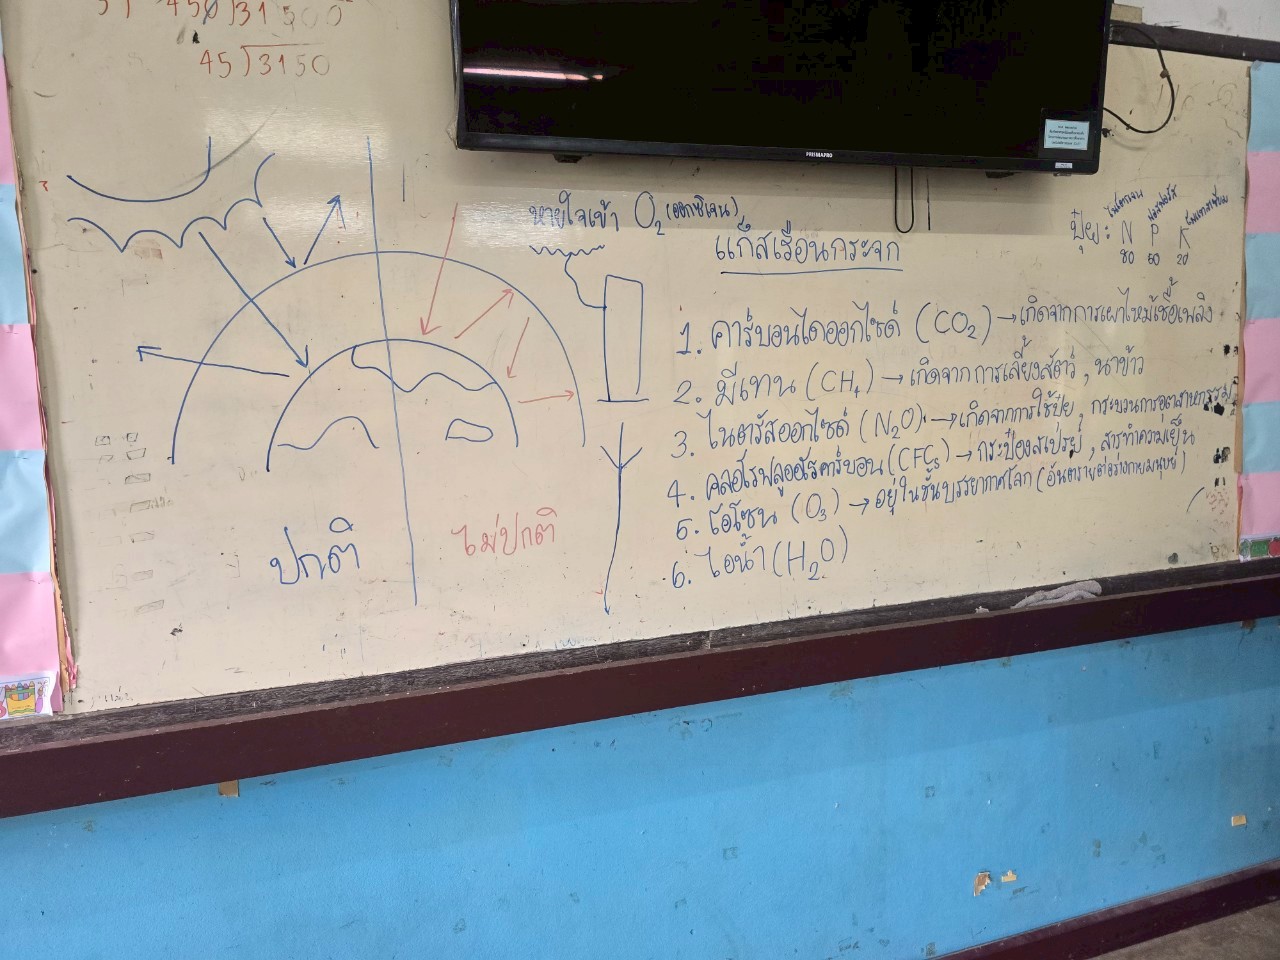 450)31500
45)3150
PRISMAPRO
หายใจเข้า O₂ (ออกซิเจน)
แก๊สเรือนกระจก
ปุ๋ย : N P K
ไนโตรเจน ฟอสฟอรัส โพแทสเซียม
80 60 20
1. คาร์บอนไดออกไซด์ (CO₂) → เกิดจากการเผาไหม้เชื้อเพลิง
2. มีเทน (CH₄) → เกิดจากการเลี้ยงสัตว์, นาข้าว
3. ไนตรัสออกไซด์ (N₂O) → เกิดจากการใช้ปุ๋ย, กระบวนการอุตสาหกรรม
4. คลอโรฟลูออโรคาร์บอน (CFCs) → กระป๋องสเปรย์, สารทำความเย็น
5. โอโซน (O₃) → อยู่ในชั้นบรรยากาศโลก (อันตรายต่อร่างกายมนุษย์)
6. ไอน้ำ (H₂O)
ปกติ
ไม่ปกติ